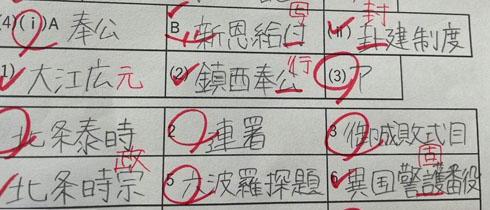 (4)(i)A 奉公 B 新恩給付 与 (ii) 圭建制度 封
(1) 大江広元 (2) 鎮西奉公 行 (3) ア
北条泰時 2 連署 3 御成敗式目
北条時宗 政 5 六波羅探題 6 異国警護番役 固